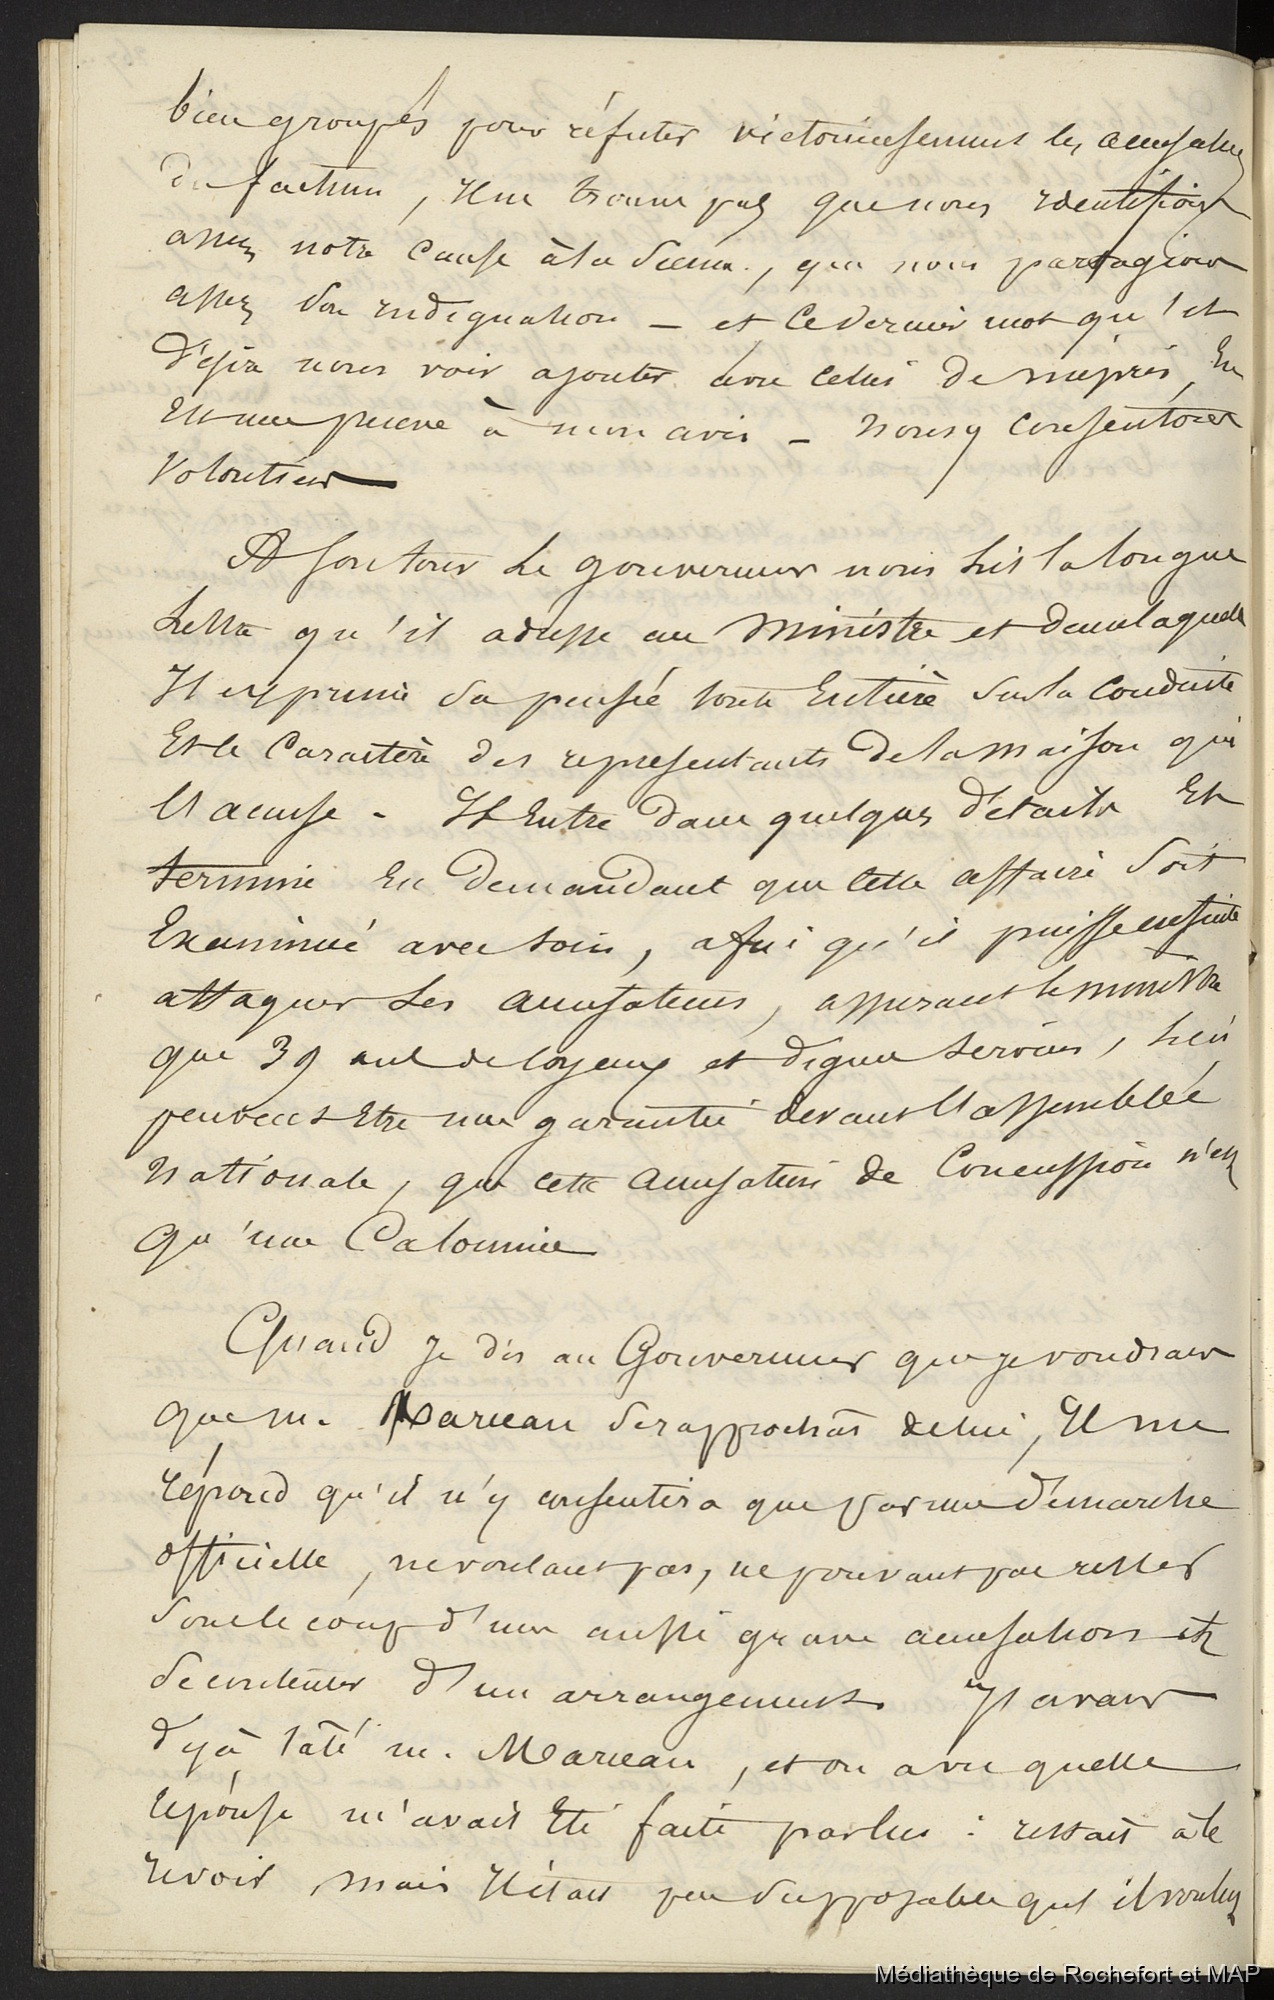 bien groupés pour réfuter victorieusement les accusations
du factum, il ne trouve pas que nous identifions
assez notre cause à la sienne, que nous partagions
assez son indignation – et ce dernier mot qu'il
désira nous voir ajouter avec celui de mépris, en
est une preuve à mon avis – nous y consentons
volontiers –
A son tour le gouverneur nous lit la longue
lettre qu'il adresse au Ministre et dans laquelle
Il exprime sa pensée toute entière sur la conduite
et le caractère des représentants de la maison qui
l'accuse – Il entre dans quelques détails et
termine en demandant que cette affaire soit
examinée avec soin, afin qu'il puisse ensuite
attaquer ses accusateurs, assurant le ministre
que 39 ans de loyaux et dignes services,
peuvent être une garantie devant l'assemblée
nationale, que cette accusation de concussion n'est
qu'une Calomnie
Quand je dis au Gouverneur que je voudrais
que M. Marceau se rapprochât de lui, Il me
répond qu'il n'y consentira que par une démarche
officielle, ne voulant pas, ne pouvant pas rester
sous le coup d'une aussi grave accusation et
se contenter d'un arrangement. J'avais
déjà tâté M. Marceau, et on a vu quelle
réponse m'avait été faite par lui : restait à le
revoir, mais il était peu supposable qu'il voulut
Médiathèque de Rochefort et MAP